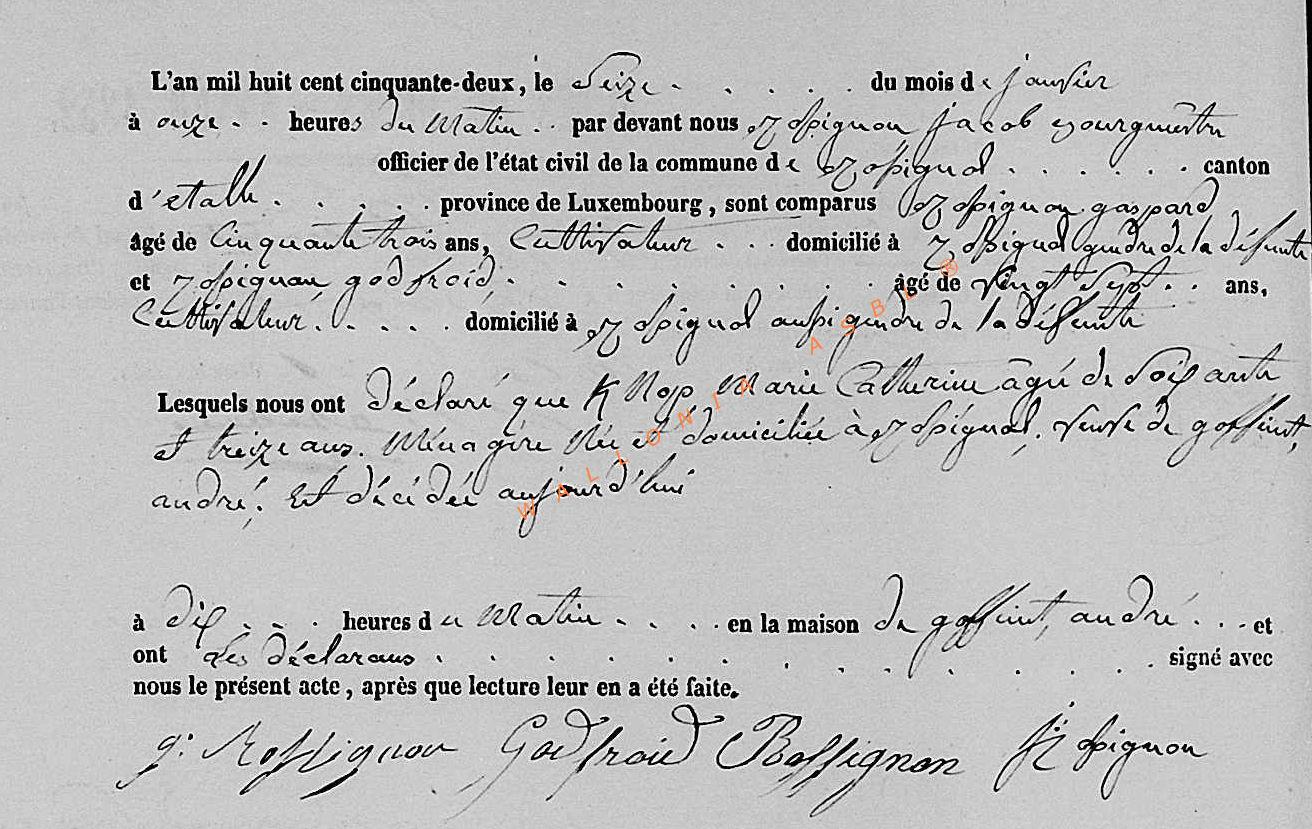 L'an mil huit cent cinquante-deux, le Seize . . . . . du mois de janvier
à onze . . heures du matin . . par devant nous Rossignon jacob bourgmestre
officier de l'état civil de la commune de Rossignol . . . . . . canton
d'etalle . . . . . province de Luxembourg, sont comparus Rossignon gaspard,
âgé de Cinquante trois ans, Cultivateur . . . domicilié à Rossignol gendre de la défunte
et Rossignon, godfroid, . . . . . . . . . âgé de vingt Sept . . ans,
Cultivateur, . . . . domicilié à Rossignol aussi gendre de la défunte
Lesquels nous ont déclaré que Marie Catherine âgé de Soixante
et treize ans. Ménagère Née et domiciliée à Rossignol, veuve de goffint,
andré, Est décédée aujourd'hui
à dix . . . heures du matin . . . . en la maison de goffint, andré . . . et
ont Les déclarans . . . . . . . . . . . signé avec
nous le présent acte, après que lecture leur en a été faite.
g. Rossignon Godfroid Rossignon J Rossignon
WALLONIA ASBL ®